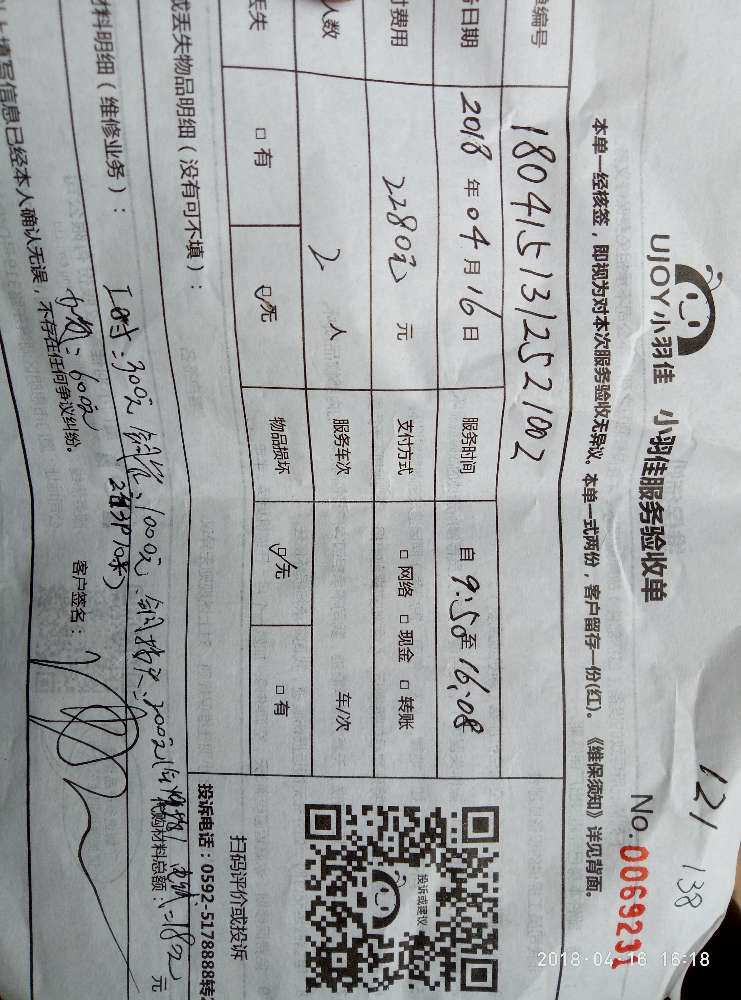 121 138
UJOY小羽佳 小羽佳服务验收单
No.
本单一经核签，即视为对本次服务验收无异议。本单一式两份，客户留存一份(红)。《维保须知》详见背面。
单编号 1804151312521002
日期 2018 年 04 月 16 日 服务时间 自 9:50 至 16:08
费用 2280元 元 支付方式 □ 网络 □ 现金 □ 转账
人数 2 人 服务车次 车/次
丢失 □ 有 ☑ 无 物品损坏 ☑ 无 □ 有
投诉或建议
扫码评价或投诉
投诉电话：0592-5178888转
或丢失物品明细（没有可不填）：
材料明细（维修业务）：
代购材料总额： 元
以上填写信息已经本人确认无误，不存在任何争议纠纷。
客户签名：
2018-04-16 16:18